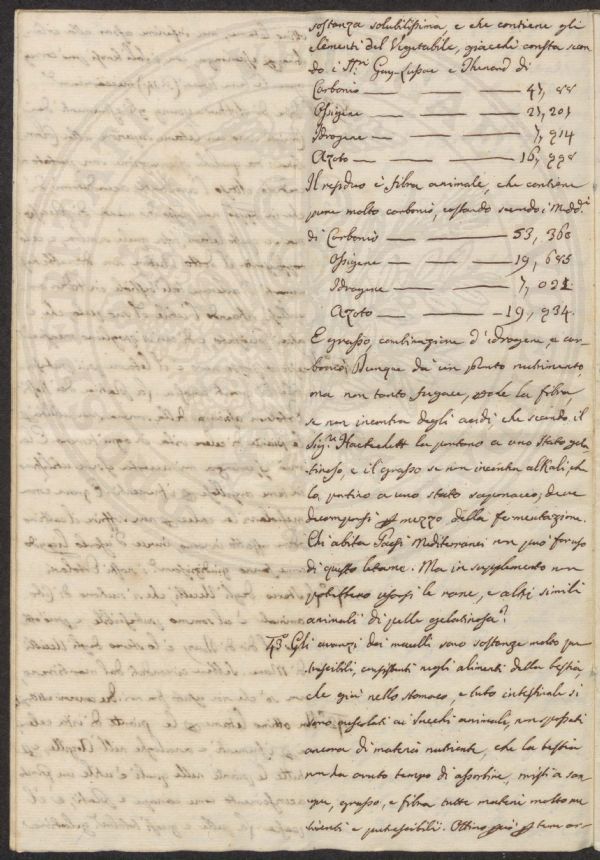 sostanza solubilissima, e che contiene gli
elementi del Vegetabile, giacchè consta secon-
do i Sig.ri Guy-Lussac e Thenard di
Carbonio — — — 47, 88
Ossigene — — — 27, 207
Idrogene — — — 7, 914
Azoto — — — 16, 998
Il residuo è fibra animale, che contiene
pure molto carbonio, costando secondo i Medd.i
di Carbonio — — 53, 360
Ossigene — — 19, 685
Idrogene — — 7, 021
Azoto — — 19, 934
E grasso, combinazione d'idrogene, e car-
bonio; Dunque dà un pronto nutrimento
ma non tanto fugace, perchè la fibra
se non incontra degli acidi, che secondo il
Sig.r Hatchett la portano a uno stato gela-
tinoso, e il grasso se non incontra alkali, che
lo portino a uno stato saponaceo, deve
decomporsi per mezzo della fermentazione.
Chi abita Paesi Mediterranei non può far uso
di questo letame. Ma in supplemento non
potrebbero usarsi le rane, e altri simili
animali di pelle gelatinosa?
43.° Gli avanzi dei macelli sono sostanze molto pu-
trescibili, consistenti negli alimenti della bestia,
che giù nello stomaco, e tubo intestinale si
sono mescolati ai succhi animali, non spossati
ancora di materie nutriente, che la bestia
non ha avuto tempo di assorbire, misti a san-
gue, grasso, e fibra tutte materie molto nu-
trienti e putrescibili. Ottimo però per terre ar-